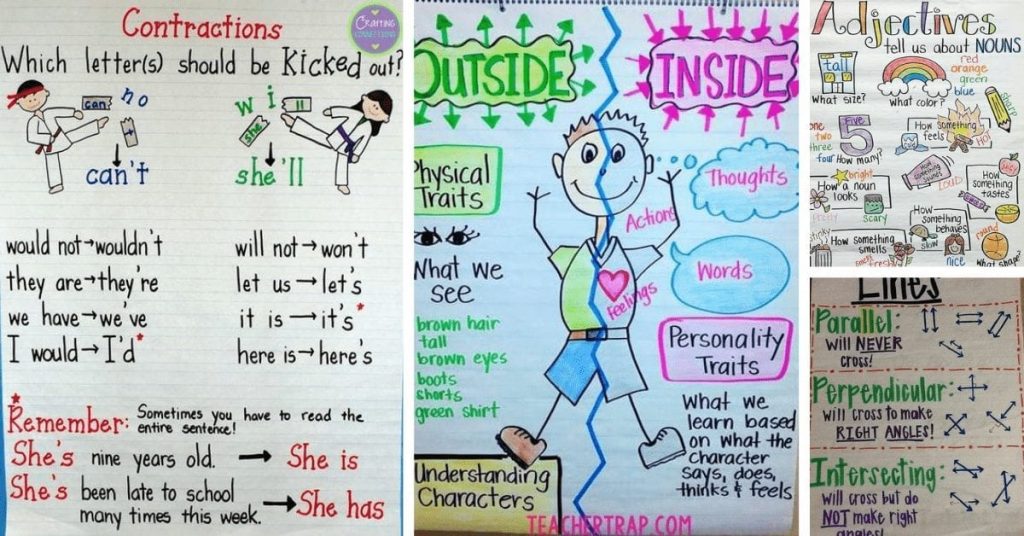 Crafting
Connections
Contractions
Which letter(s) should be Kicked out?
can no
can't
w i ll
she
she'll
would not→wouldn't
they are→they're
we have→we've
I would→I'd*
will not→won't
let us→let's
it is→it's*
here is→here's
*
Remember: Sometimes you have to read the
entire sentence!
She's nine years old. → She is
She's been late to school
many times this week. → She has
OUTSIDE
INSIDE
Physical
Traits
What we
see
brown hair
tall
brown eyes
boots
shorts
green shirt
Understanding
Characters
Thoughts
Actions
Words
Feelings
Personality
Traits
What we
learn based
on what the
character
says, does,
thinks & feels
TEACHERTRAP.COM
Adjectives
tell us about NOUNS
tall
What size?
red
orange
green
blue
What color?
sharp
one
two
three
four
Five
5
How many?
How something
feels
Hot
bright
How a noun
looks
pretty
scary
How something
sounds
LOUD
How
something
tastes
How
something
behaves
nice
stinky
How something
smells
fresh
round
What shape?
Lines
Parallel:
will NEVER
cross!
Perpendicular:
will cross to make
RIGHT ANGLES!
Intersecting:
will cross but do
NOT make right
angles!